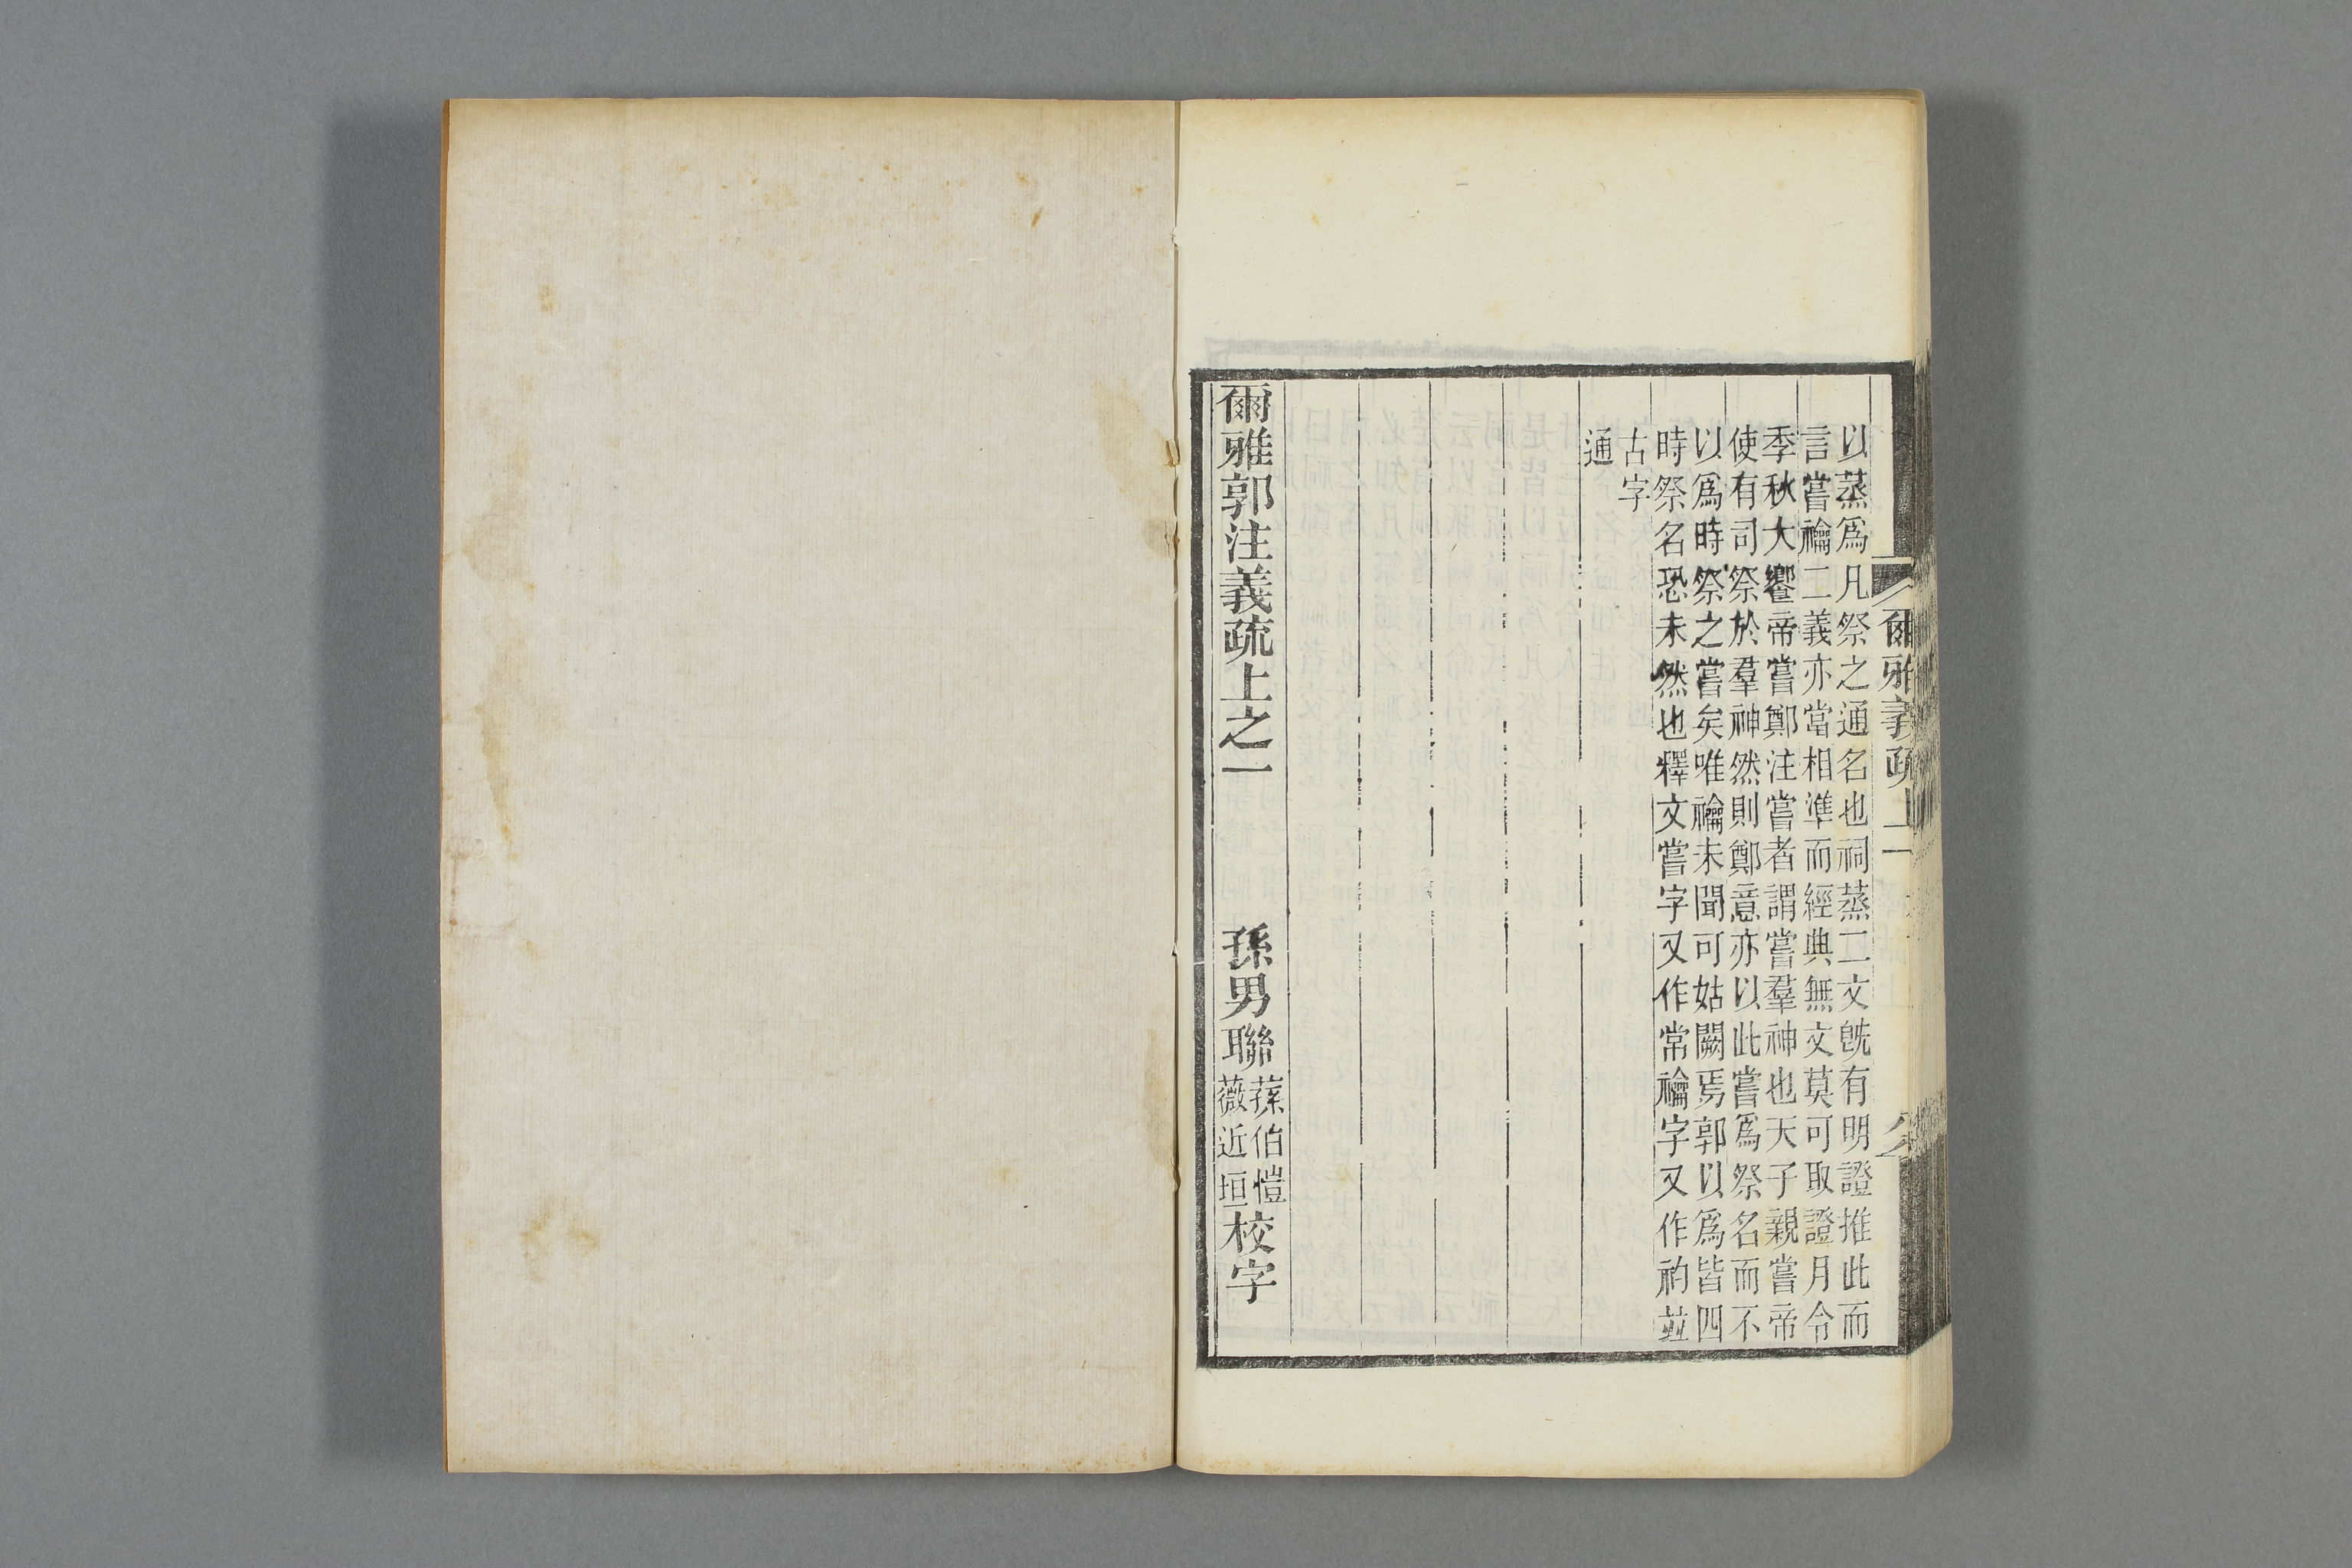 以蒸爲凡祭之通名也祠蒸二文旣有明證推此而
言嘗禴二義亦當相準而經典無文莫可取證月令
季秋大饗帝嘗鄭注嘗者謂嘗羣神也天子親嘗帝
使有司祭於羣神然則鄭意亦以此嘗爲祭名而不
以爲時祭之嘗矣唯禴未聞可姑闕焉郭以爲皆四
時祭名恐未然也釋文嘗字又作常禴字又作礿並
古字
通
爾雅郭注義疏上之一
孫男聯
蓀伯愷
薇近垣
校字
爾雅義疏上一